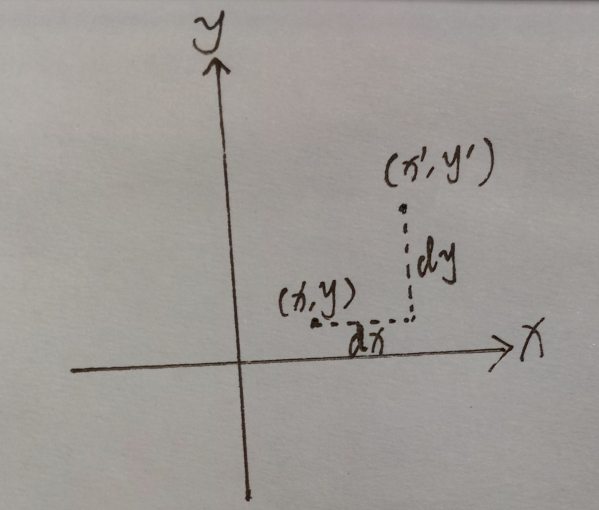 y
(x', y')
dy
(x, y)
dx
X